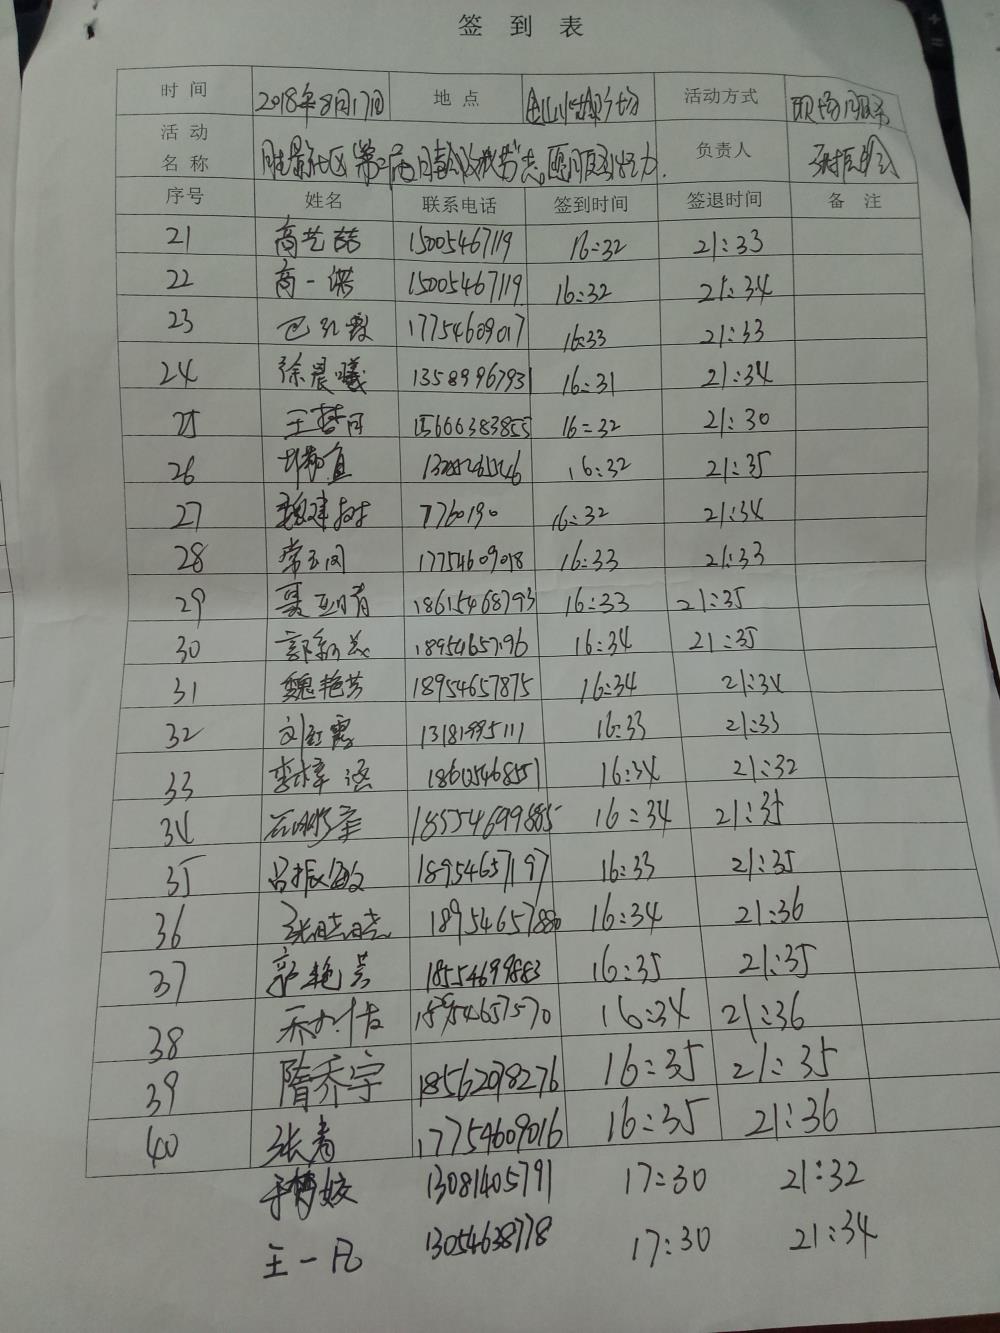 签 到 表
时 间 2018年8月17日 地 点 活动方式 现场服务
活 动 名 称 社区 第二届 负责人
序号 姓名 联系电话 签到时间 签退时间 备 注
21 高艺喆 15005467119 16:32 21:33
22 高一诺 15005467119 16:32 21:34
23 17754609017 16:33 21:33
24 徐晨曦 13589967931 16:31 21:34
25 15666383855 16:32 21:30
26 16:32 21:35
27 7760190 16:32 21:34
28 常玉同 17754609018 16:33 21:33
29 18615468793 16:33 21:35
30 16:34 21:35
31 魏艳芳 18954657875 16:34 21:34
32 刘红霞 16:33 21:33
33 李梓涵 16:34 21:32
34 18554699885 16:34 21:35
35 吕振敏 18954657197 16:33 21:35
36 张晓晓 18954657880 16:34 21:36
37 郭艳芳 18554699883 16:35 21:35
38 18954657570 16:34 21:36
39 隋乔宇 18562098276 16:35 21:35
40 张青 17754609016 16:35 21:36
13081405791 17:30 21:32
王一凡 13054638778 17:30 21:34